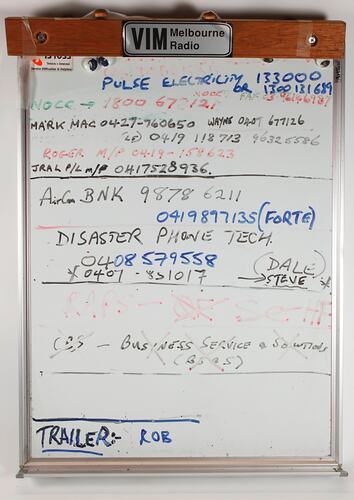 VIM Melbourne Radio
PULSE ELECTRICITY 133000
OR 1300131689
NOCC → 1800 67
NOCC FAX
MARK MAC 0427-760650 WAYNE 0407 677126
0419 118713 96325586
ROGER M/P 0419-158623
JRAL P/L M/P 0417528936
AirCon BNK 9878 6211
0419897135 (FORTE)
DISASTER PHONE TECH.
0408579558 (DALE)
* 0407-831017 → STEVE *
RAPS -
CBS - BUSINESS SERVICE & SOLUTIONS
(BS&S)
TRAILER:- ROB